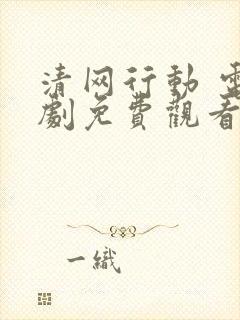 清网行動 電
劇免費觀看
一織